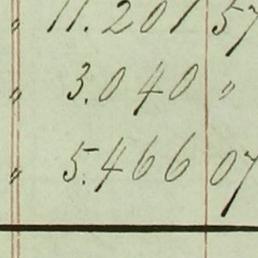 " 11.201 57
" 3.040 "
" 5.466 07